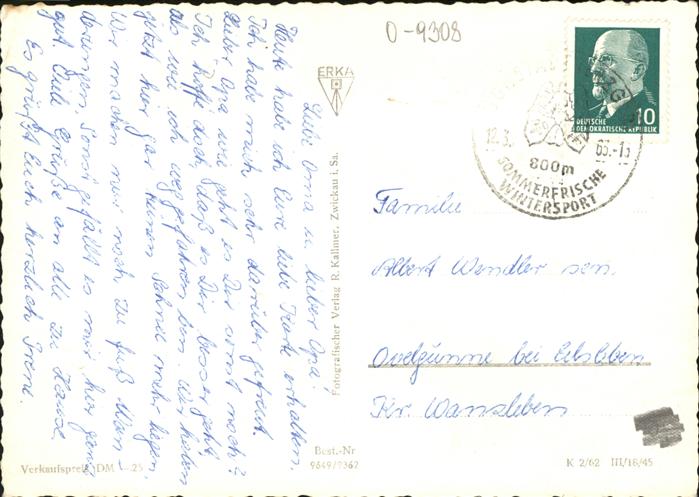 Liebe Oma u. lieber Opa!
Heute habe ich Eure liebe Karte erhalten.
Ich habe mich sehr darüber gefreut.
Lieber Opa wie geht es Dir sonst noch?
Ich hoffe doch, daß es Dir besser geht
als wie ich weggefahren bin. Wir haben
jetzt hier gar keinen Schnee mehr liegen.
Wir machen nur noch zu Fuß Wan-
derungen. Sonst gefällt es mir hier ganz
gut. Viele Grüße an alle zu Hause.
Es grüßt Euch herzlich Irene.
Verkaufspreis DM -.25
ERKA
Fotografischer Verlag R. Kallmer, Zwickau i. Sa.
Best.-Nr
9649/9362
O-9308
DEUTSCHE
DEMOKRATISCHE REPUBLIK
10
12.3. 63.-15
800m
SOMMERFRISCHE
WINTERSPORT
Familie
Albert Wendler sen.
Ovelgünne bei Eilsleben
Kr. Wanzleben
K 2/62 III/18/45